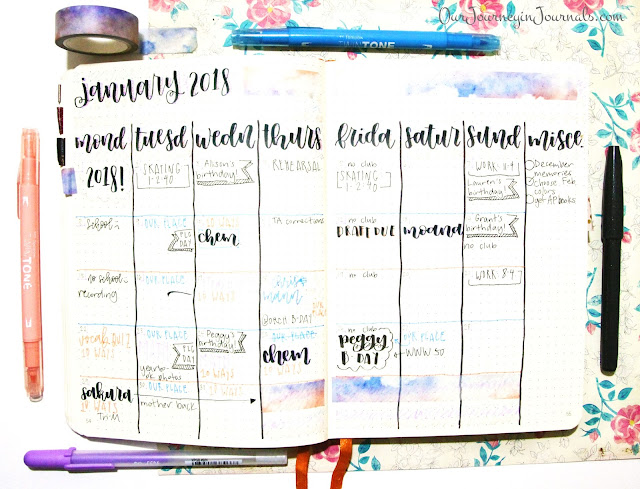 OurJourneyinJournals.com
TONE
january 2018
mond tuesd wedn thurs frida satur sund misce.
2018!
SKATING
1-2:40
Alison's
birthday!
REHEARSAL
no club
SKATING
1-2:40
WORK
Lauren's
birthday!
December
memories
choose Feb
colors
get AP books
school
OUR PLACE
DAY
10 WAYS
chem
TA corrections
no club
DRAFT DUE
moana
Grant's
birthday!
no club
no school
recording
OUR PLACE
10 WAYS
no club
WORK 8-4
vocab QUIZ
10 WAYS
OUR PLACE
DAY
photos
Peggy's
birthday!
10 WAYS
OUR PLACE
chem
no club
peggy
B-DAY
OUR PLACE
WWW 50
sakura
10 WAYS
OUR PLACE
mother back
10 WAYS
TONE